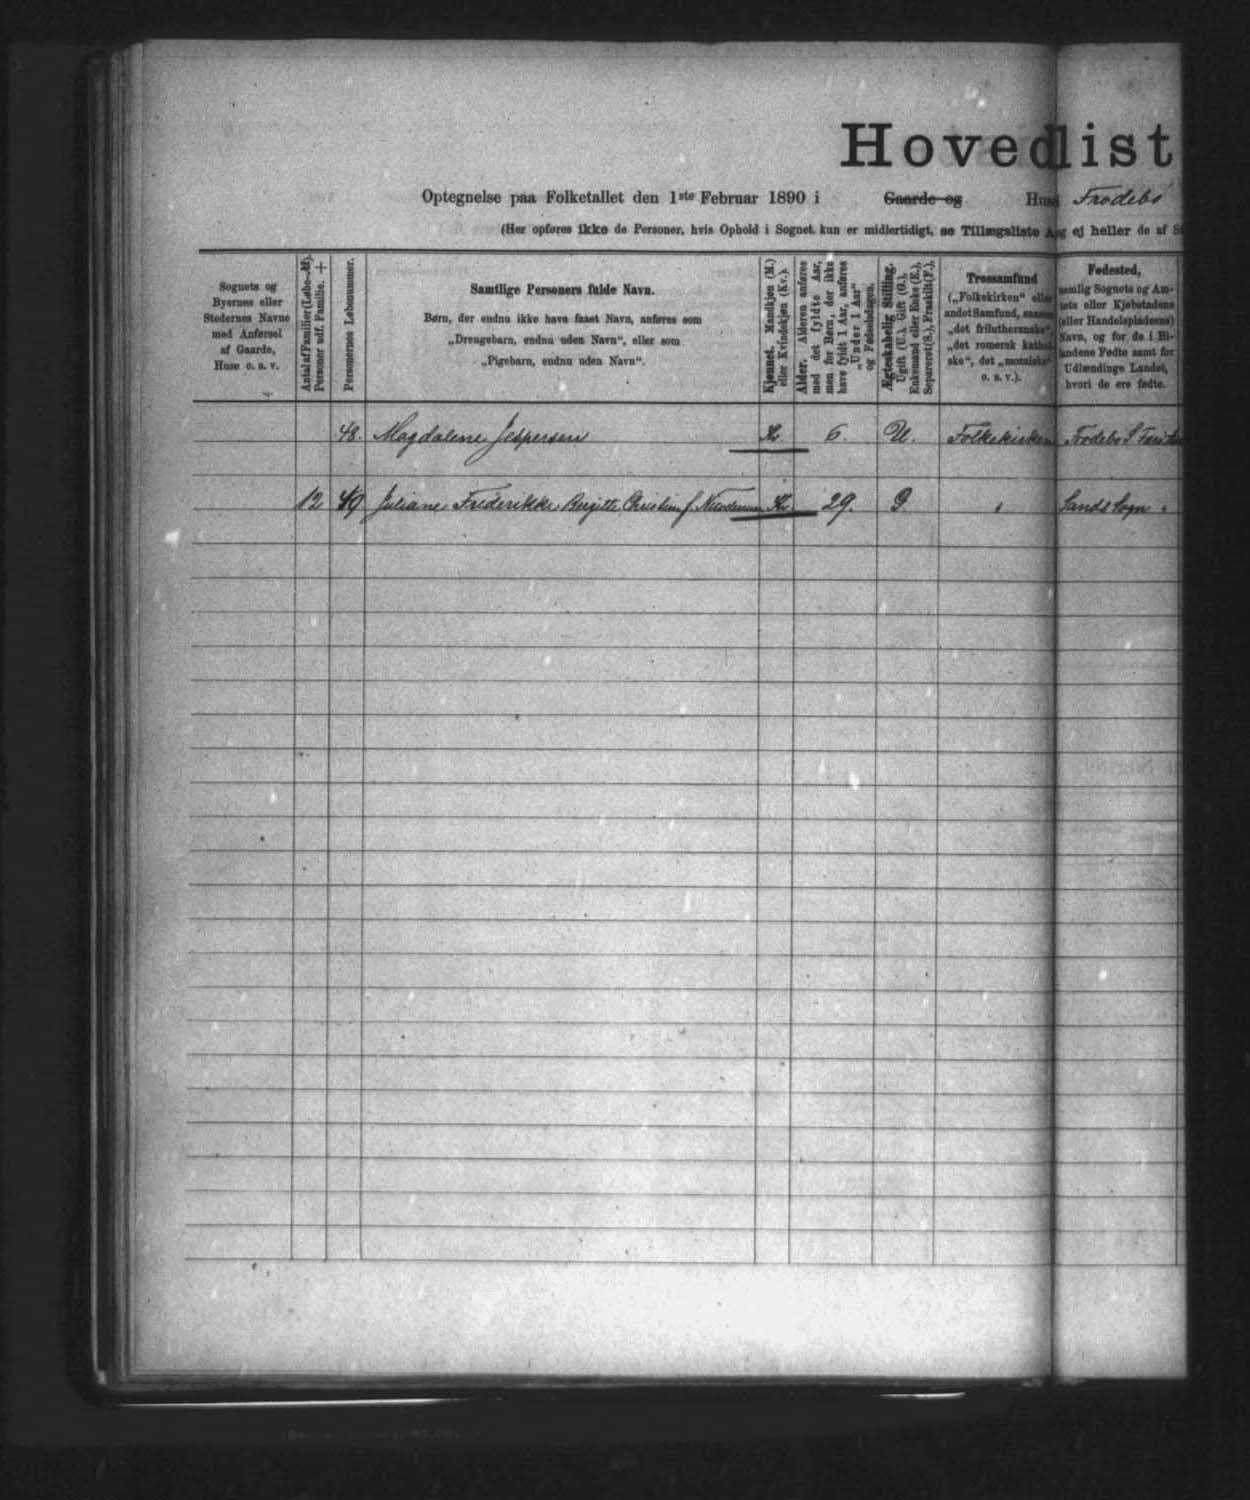 Hovedlist
Optegnelse paa Folketallet den 1ste Februar 1890 i Gaarde og Huse Frodebö
(Her opføres ikke de Personer, hvis Ophold i Sognet kun er midlertidigt, se Tillægsliste A, og ej heller de af S
Sognets og
Byernes eller
Stedernes Navne
med Anførsel
af Gaarde,
Huse o. s. v.
Antal af Familier (Løbe-Nr.
Personer udf. Familie. +
Personernes Løbenummer.
Samtlige Personers fulde Navn.
Børn, der endnu ikke have faaet Navn, anføres som
„Drengebarn, endnu uden Navn“, eller som
„Pigebarn, endnu uden Navn“.
Kjønnet. Mandkjøn (M.)
eller Kvindekjøn (Kv.).
Alder. Alderen anføres
med det fyldte Aar,
men for Børn, der ikke
have fyldt 1 Aar, anføres
„Under 1 Aar“
og Fødselsdagen.
Ægteskabelig Stilling.
Ugift (U.), Gift (G.),
Enkemand eller Enke (E.),
Separeret (S.), Fraskilt (F.).
Trossamfund
(„Folkekirken“ eller
andet Samfund, saasom
„det frilutherske“,
„det romersk kathol
ske“, det „mosaiske“
o. s. v.).
Fødested,
nemlig Sognets og Am-
tets eller Kjøbstadens
(eller Handelspladsens)
Navn, og for de i Bi-
landene Fødte samt for
Udlændinge Landet,
hvori de ere fødte.
48. Magdalene Jespersen Kv 6. U. Folkekirken Frodebo S
12 49 Juliane Frederikke Birgitte f. Kv 29. G. " Sands Sogn "